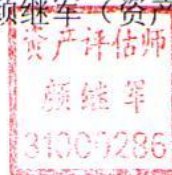 颜继军（资产
资产评估师
颜继军
31000286